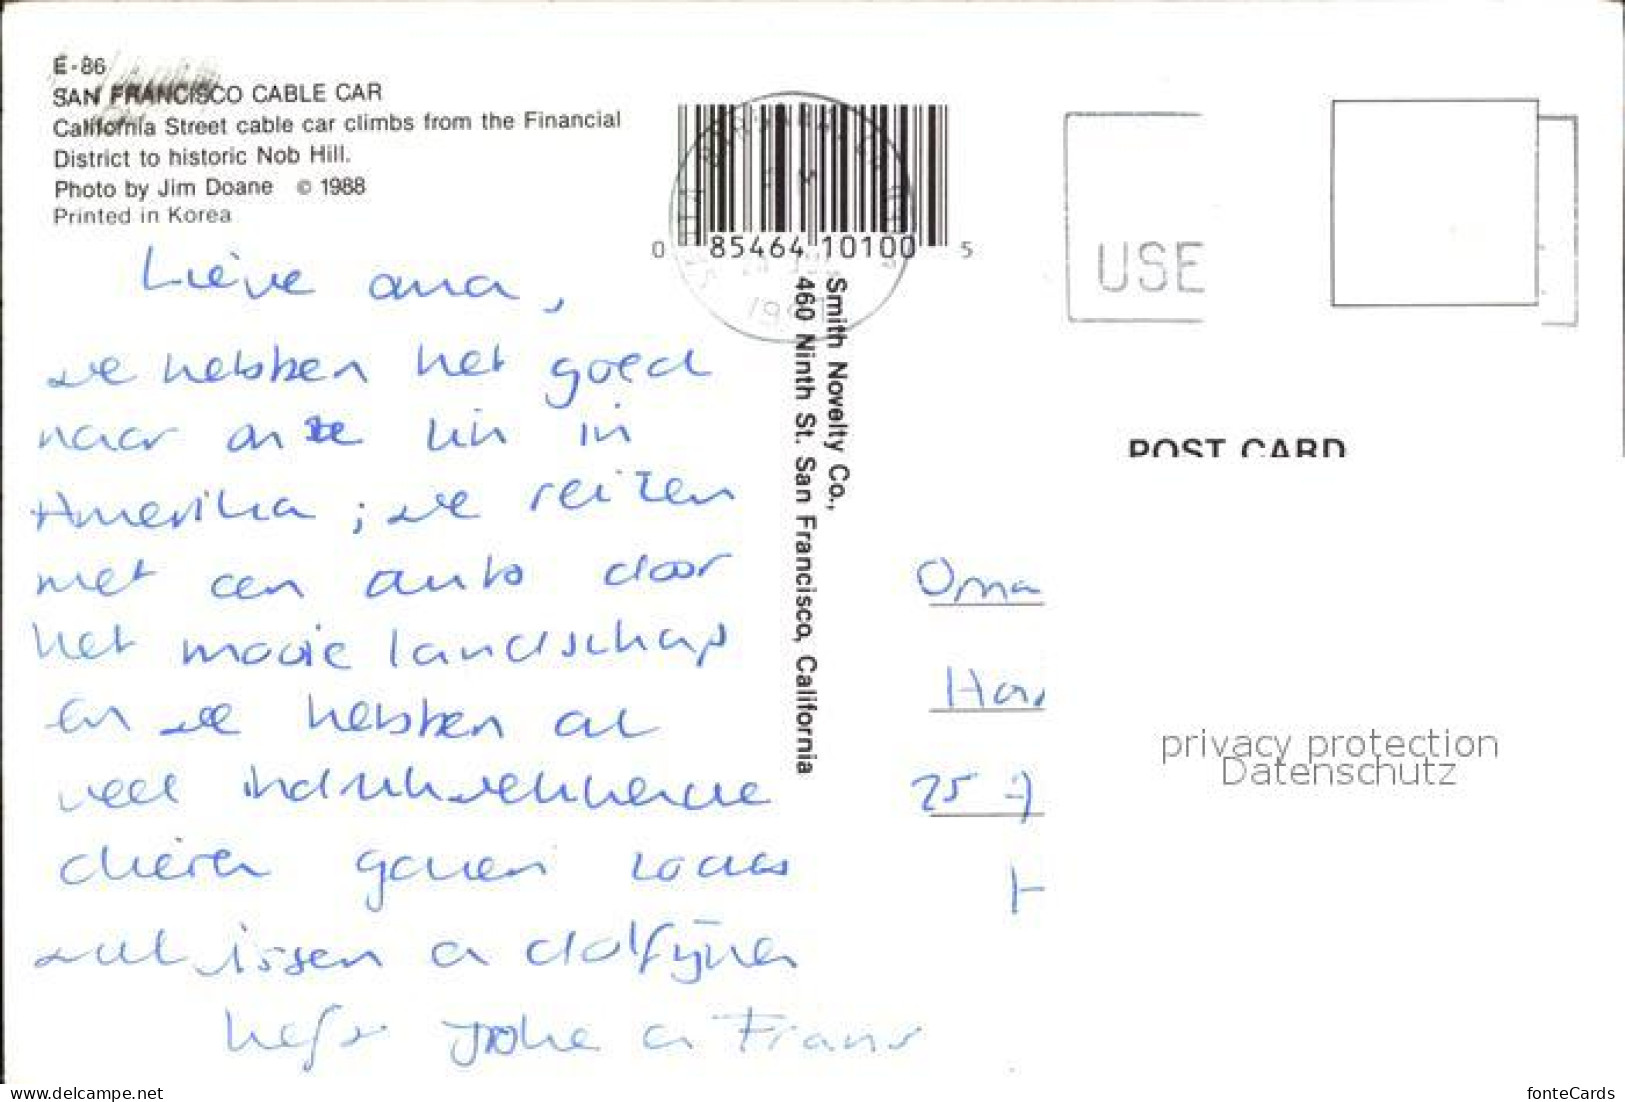 E-86
SAN FRANCISCO CABLE CAR
California Street cable car climbs from the Financial
District to historic Nob Hill.
Photo by Jim Doane © 1988
Printed in Korea
0 85464 10100 5
Smith Novelty Co.,
460 Ninth St. San Francisco, California
USE
POST CARD
Lieve oma,
we hebben het goed
naar onze zin in
Amerika; we reizen
met een auto door
het mooie landschap
en we hebben al
veel indrukwekkende
dieren gezien zoals
walvissen en dolfijnen
liefs en Frans
Oma
25
H
privacy protection
Datenschutz
https://www.delcampe.net
fonteCards